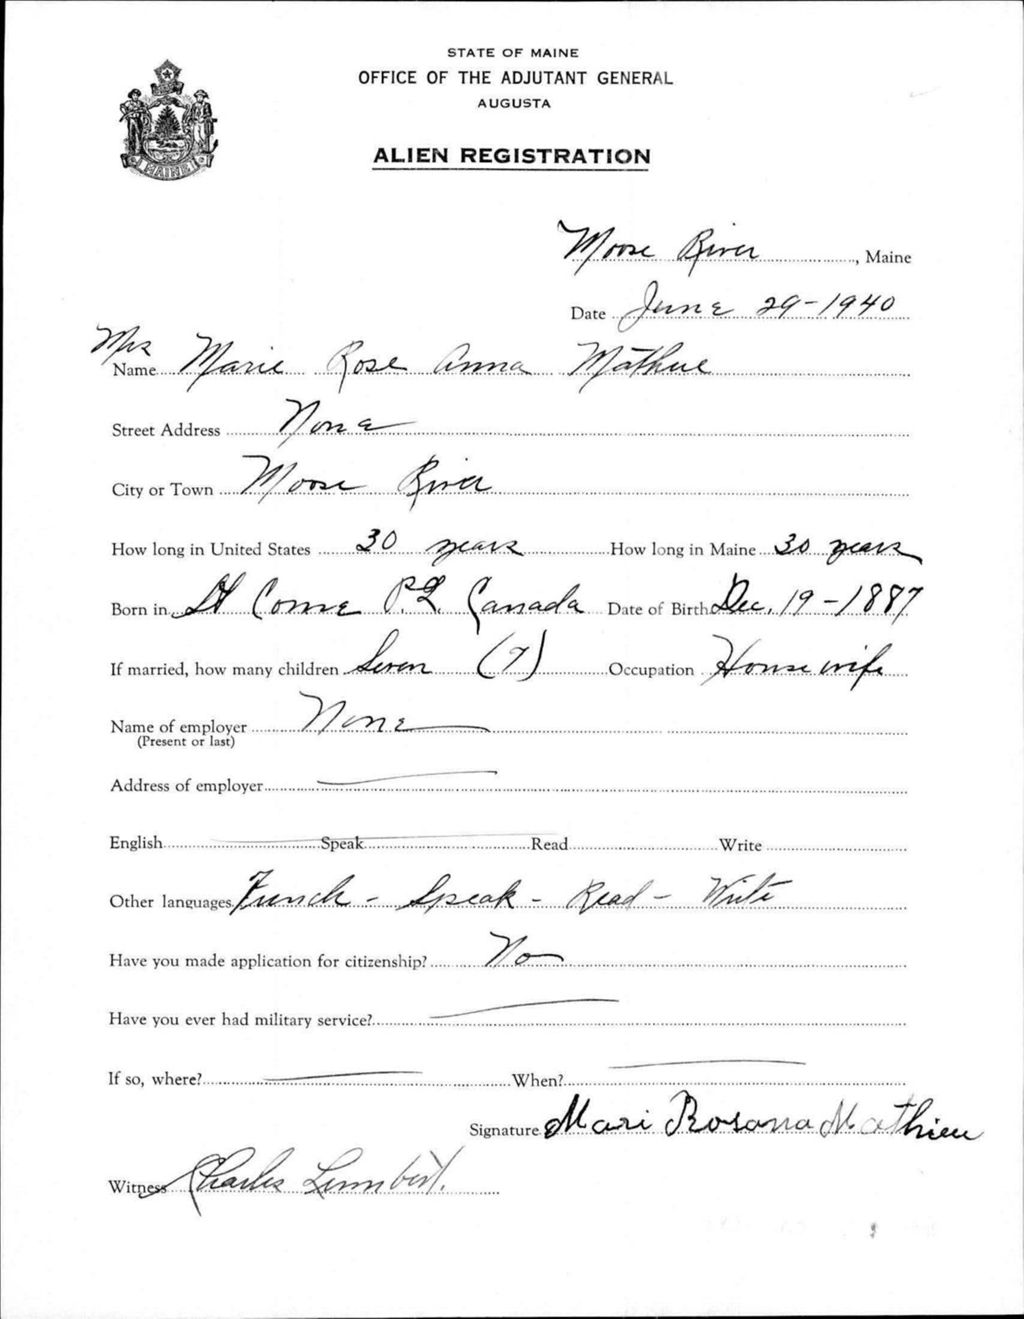 STATE OF MAINE
OFFICE OF THE ADJUTANT GENERAL
AUGUSTA
ALIEN REGISTRATION
MAINE
Moose River, Maine
Date June 29-1940
Mrs
Name Marie Rose Anna Mathue
Street Address None
City or Town Moose River
How long in United States 30 years How long in Maine 30 years
Born in St Come P.Q. Canada Date of Birth Dec. 19-1887
If married, how many children Seven (7) Occupation Housewife
Name of employer None
(Present or last)
Address of employer
English Speak Read Write
Other languages French - Speak - Read - Write
Have you made application for citizenship? No
Have you ever had military service?
If so, where? When?
Signature Mari Rosana Mathieu
Witness Charles